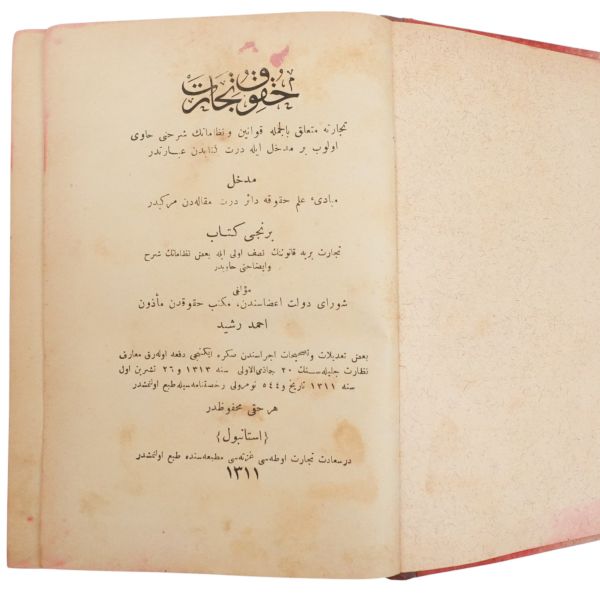 حقوق تجارت
تجارته متعلق بالجمله قوانين و نظاماتك شرحنى حاوى
اولوب بر مدخل ايله درت كتابدن عبارتدر
مدخل
مبادىء علم حقوقه دائر درت مقاله‌دن مركبدر
برنجى كتاب
تجارت بريه قانوننك نصف اولى ايله بعض نظاماتك شرح
وايضاحنى حاويدر
مؤلفى
شوراى دولت اعضاسندن، مكتب حقوقدن مأذون
احمد رشيد
بعض تعديلات وتصحيحات اجراسندن صكره ايكنجى دفعه اوله‌رق معارف
نظارت جليله‌سنك ٢٠ جماذى‌الاولى سنه ١٣١٣ و ٢٦ تشرين اول
سنه ١٣١١ تاريخ و ٥٤٤ نومرولى رخصتنامه‌سيله طبع اولنمشدر
هر حقى محفوظدر
{استانبول}
در سعادت تجارت اوطه‌سى غزته‌سى مطبعه‌سنده طبع اولنمشدر
١٣١١